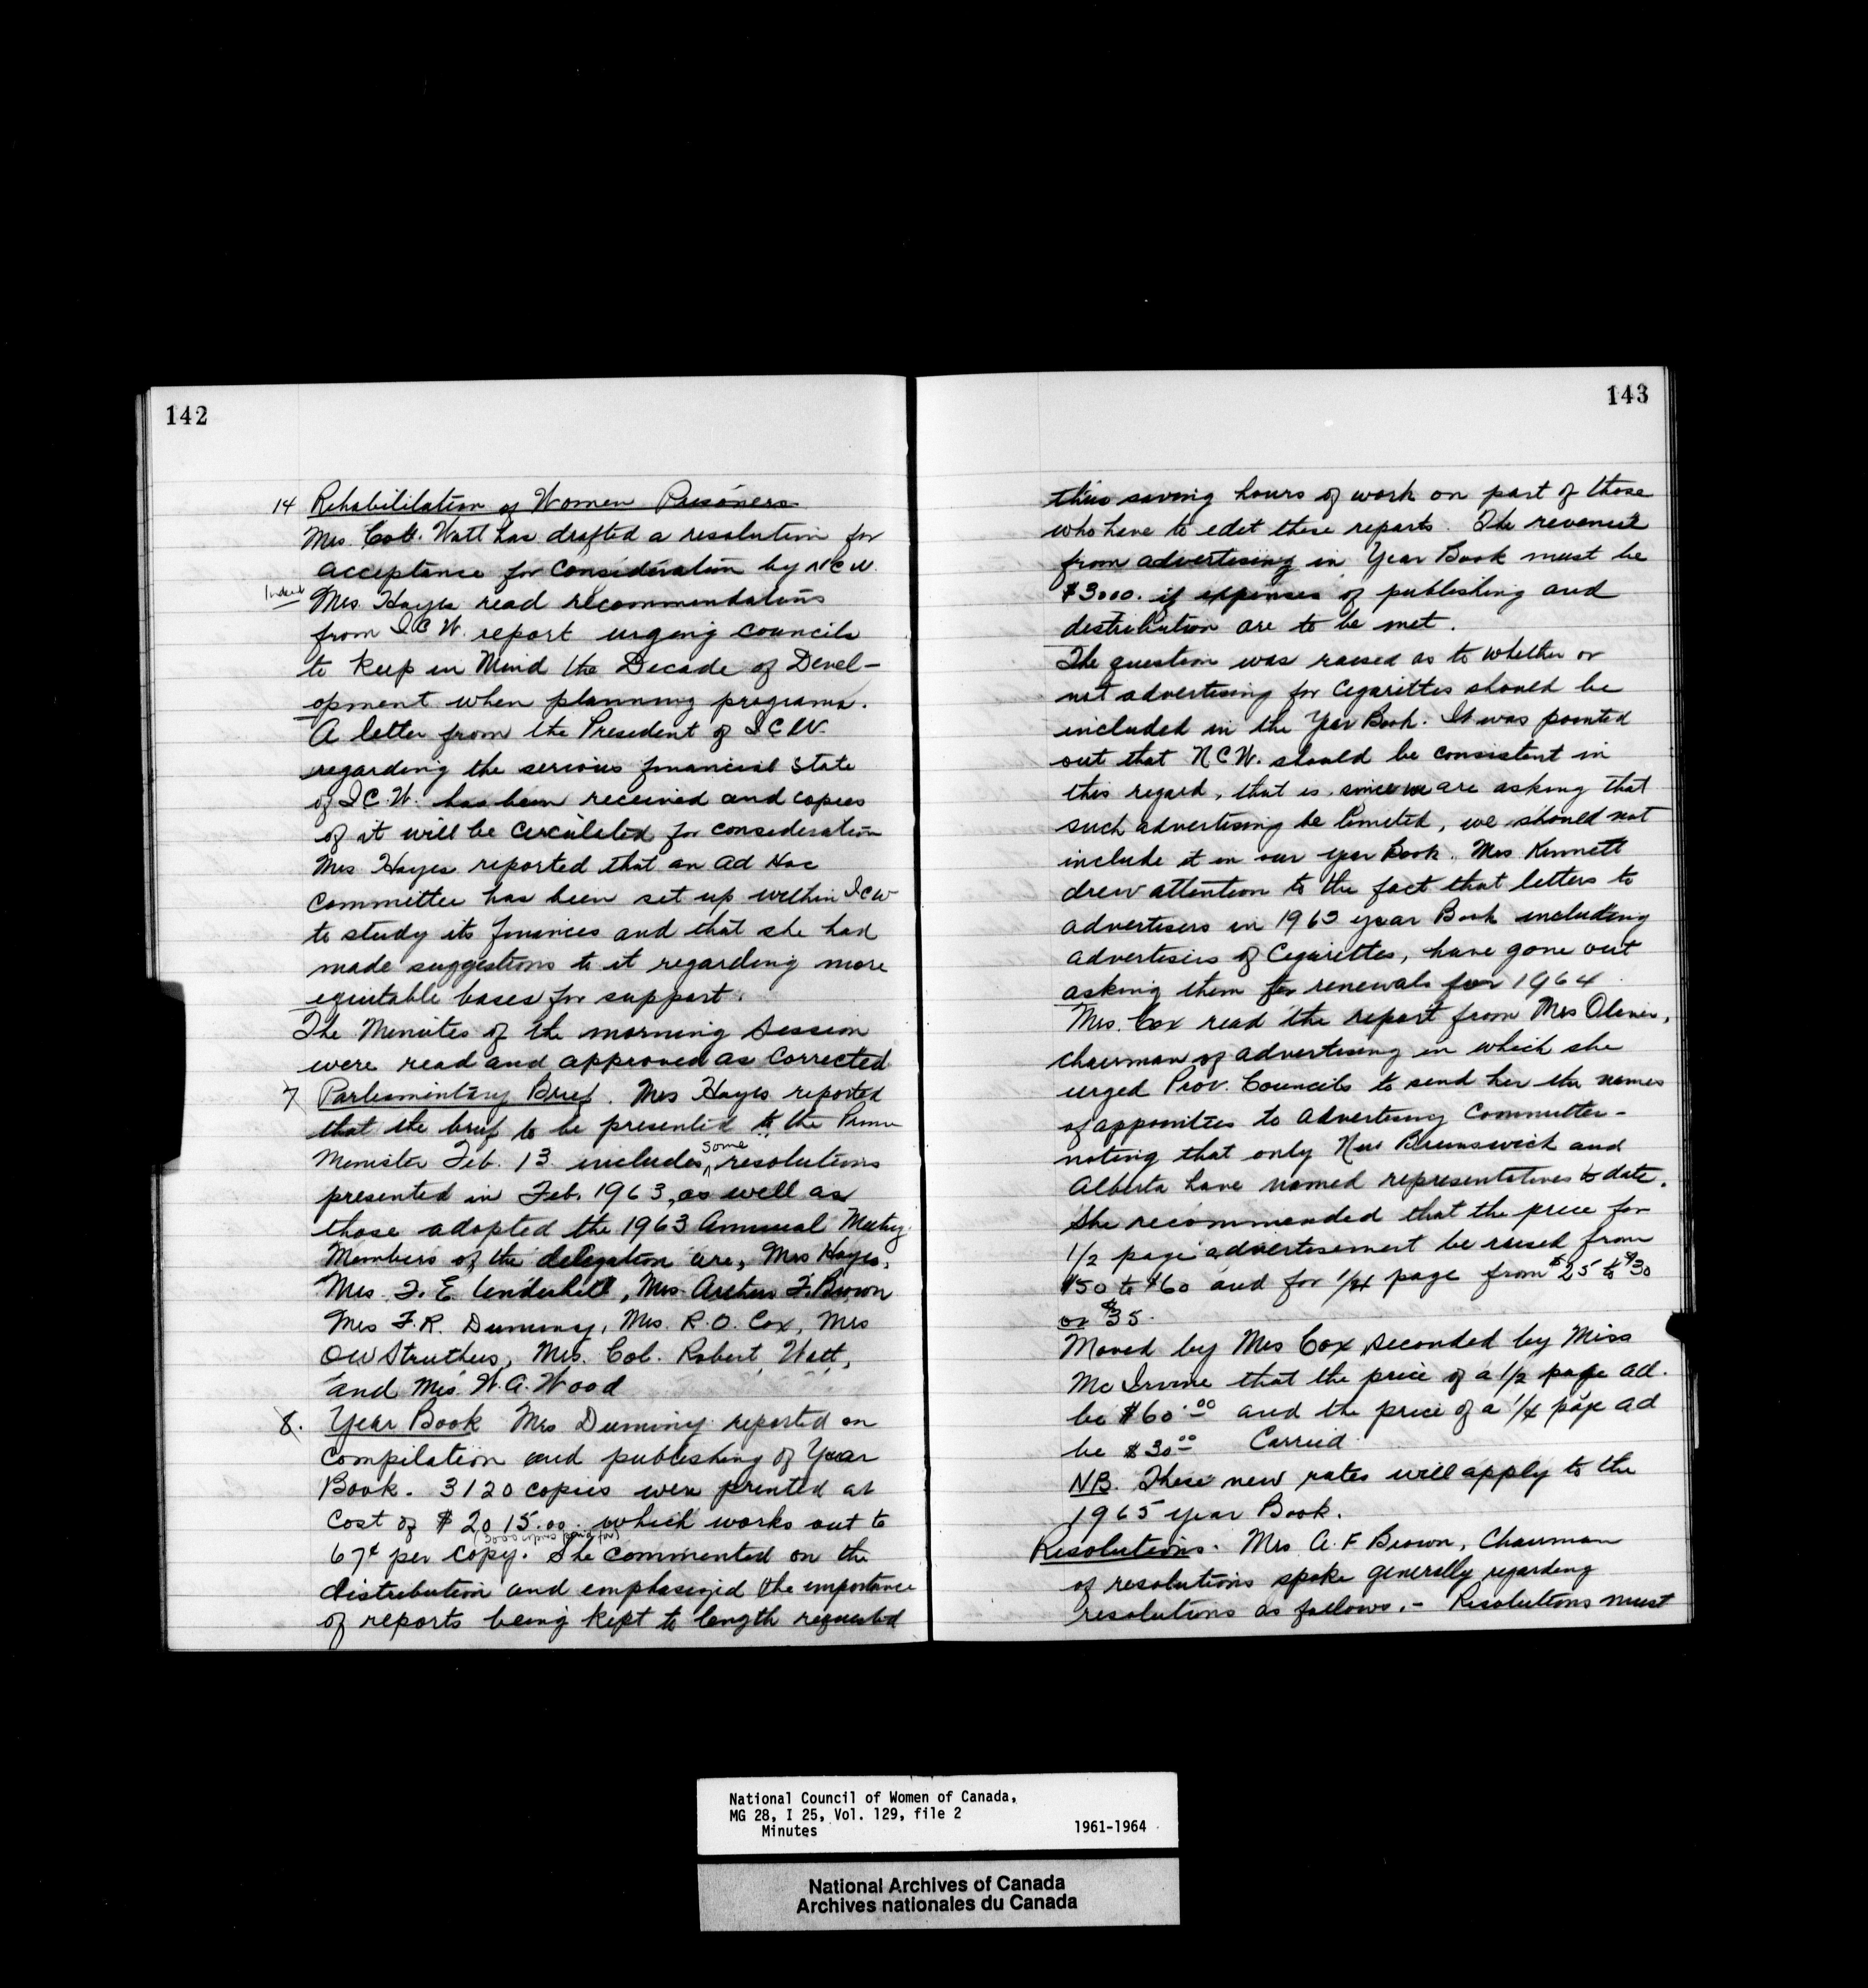 142
14 Rehabilitation of Women Prisoners
Mrs. Col. Watt has drafted a resolution for
acceptance for consideration by NCW.
Mrs. Hayes read recommendations
from ICW. report urging councils
to keep in mind the Decade of Devel-
opment when planning programs.
A letter from the President of ICW.
regarding the serious financial state
of I.C.W. has been received and copies
of it will be circulated for consideration
Mrs Hayes reported that an Ad Hoc
committee has been set up within ICW
to study its finances and that she had
made suggestions to it regarding more
equitable bases for support.
The Minutes of the morning session
were read and approved as corrected
7 Parliamentary Brief. Mrs Hayes reported
that the brief to be presented to the Prime
Minister Feb. 13 includes some resolutions
presented in Feb. 1963, as well as
those adopted the 1963 Annual Meeting.
Members of the delegation are, Mrs Hayes,
Mrs. F. E. Underhill, Mrs. Arthur F. Brown
Mrs F.R. Duminy, Mrs. R.O. Cox, Mrs
OW Struthers, Mrs. Col. Robert Watt,
and Mrs. W.A. Wood
8. Year Book Mrs Duminy reported on
compilation and publishing of Year
Book. 3120 copies were printed at
cost of $2015.00. which works out to
(3000 copies paid for)
67¢ per copy. She commented on the
distribution and emphasized the importance
of reports being kept to length requested
143
thus saving hours of work on part of those
who have to edit these reports. The revenue
from advertising in Year Book must be
$3000. if expenses of publishing and
distribution are to be met.
The question was raised as to whether or
not advertising for cigarettes should be
included in the Year Book. It was pointed
out that NCW. should be consistent in
this regard, that is since we are asking that
such advertising be limited, we should not
include it in our year Book. Mrs Kennett
drew attention to the fact that letters to
advertisers in 1963 year Book including
advertisers of Cigarettes, have gone out
asking them for renewals for 1964
Mrs. Cox read the report from Mrs Oliver,
chairman of advertising in which she
urged Prov. Councils to send her the names
of appointees to Advertising Committee -
noting that only New Brunswick and
Alberta have named representatives to date.
She recommended that the price for
1/2 page advertisement be raised from
$50 to $60 and for 1/4 page from $25 to $30
or $35.
Moved by Mrs Cox, seconded by Miss
McIrvine that the price of a 1/2 page ad.
be $60.00 and the price of a 1/4 page ad
be $30.00 Carried.
NB. These new rates will apply to the
1965 year Book.
Resolutions. Mrs A. F Brown, Chairman
of resolutions spoke generally regarding
resolutions as follows. - Resolutions must
National Council of Women of Canada,
MG 28, I 25, Vol. 129, file 2
Minutes 1961-1964
National Archives of Canada
Archives nationales du Canada